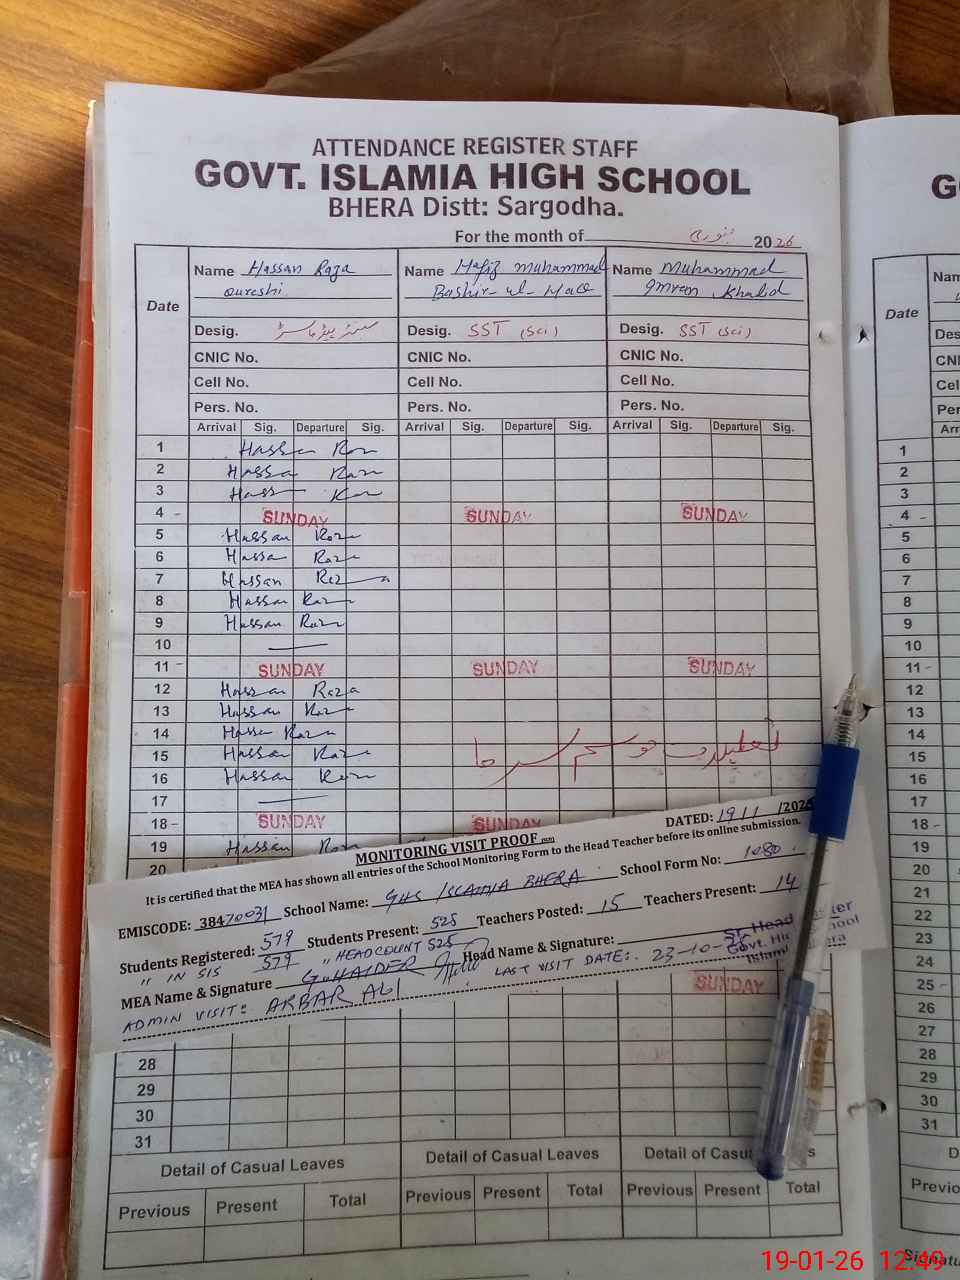 ATTENDANCE REGISTER STAFF
GOVT. ISLAMIA HIGH SCHOOL
BHERA Distt: Sargodha.
For the month of جنوری 2026
Date
Name Hassan Raza Qureshi
Name Hafiz Muhammad Bashir-ul-Haq
Name Muhammad Imran Khalid
Desig. سینئر ہیڈ ماسٹر
Desig. SST (Sci)
Desig. SST (Sci)
CNIC No. CNIC No. CNIC No.
Cell No. Cell No. Cell No.
Pers. No. Pers. No. Pers. No.
Arrival Sig. Departure Sig. Arrival Sig. Departure Sig. Arrival Sig. Departure Sig.
1 Hassan Raza
2 Hassan Raza
3 Hassan Raza
4 - SUNDAY SUNDAY SUNDAY
5 Hassan Raza
6 Hassan Raza
7 Hassan Raza
8 Hassan Raza
9 Hassan Raza
10
11 - SUNDAY SUNDAY SUNDAY
12 Hassan Raza
13 Hassan Raza
14 Hassan Raza
15 Hassan Raza
تعطیلات موسم سرما
16 Hassan Raza
17
18 - SUNDAY SUNDAY
19 Hassan Raza
20
MONITORING VISIT PROOF
DATED: 19/1/2026
It is certified that the MEA has shown all entries of the School Monitoring Form to the Head Teacher before its online submission.
EMISCODE: 38470031 School Name: GHS ISLAMIA BHERA School Form No: 1080
Students Registered: 579 Students Present: 525 Teachers Posted: 15 Teachers Present: 14
" IN SIS 579 " HEADCOUNT 525
MEA Name & Signature G. HAIDER Head Name & Signature:
Sr. Head
Govt.
Islami
ADMIN VISIT: AKBAR ALI LAST VISIT DATE:. 23-10-25
SUNDAY
28
29
30
31
Detail of Casual Leaves Detail of Casual Leaves Detail of Casu s
Previous Present Total Previous Present Total Previous Present Total
G
Date
Nam
Des
CNI
Cel
Per
Arr
1
2
3
4 -
5
6
7
8
9
10
11 -
12
13
14
15
16
17
18 -
19
20
21
22
23
24
25 -
26
27
28
29
30
31
D
Previo
Signatu
19-01-26 12:49